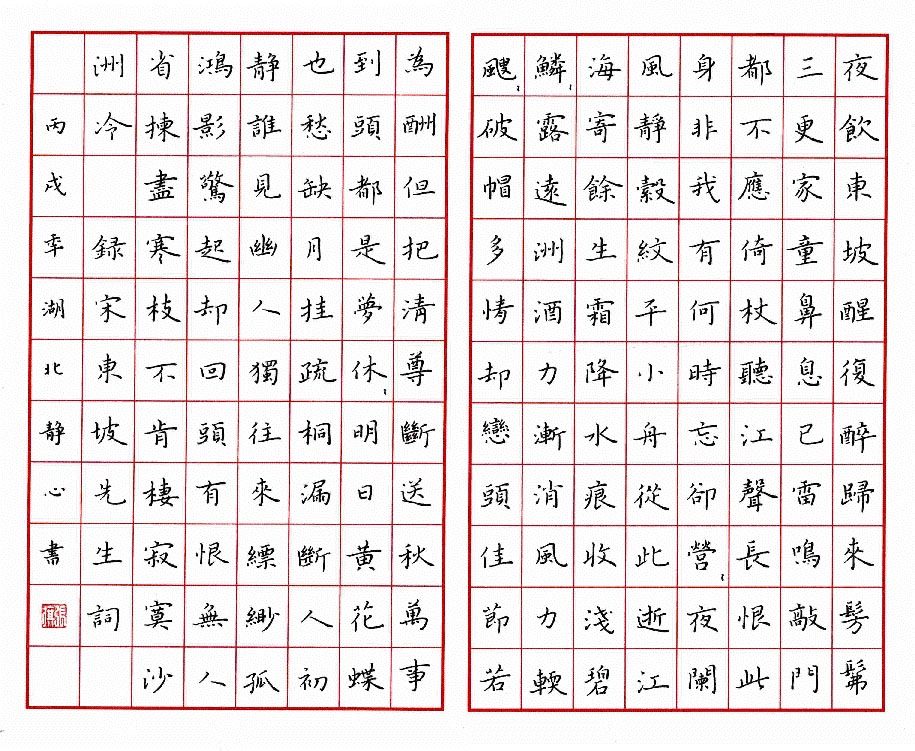 夜飲東坡醒復醉歸來髣髴
三更家童鼻息已雷鳴敲門
都不應倚杖聽江聲長恨此
身非我有何時忘卻營、夜闌
風靜縠紋平小舟從此逝江
海寄餘生霜降水痕收淺碧
鱗、露遠洲酒力漸消風力輭
颼、破帽多情却戀頭佳節若
為酬但把清尊斷送秋萬事
到頭都是夢休、明日黃花蝶
也愁缺月挂疏桐漏斷人初
靜誰見幽人獨往來縹緲孤
鴻影驚起却回頭有恨無人
省揀盡寒枝不肯棲寂寞沙
洲冷 録宋東坡先生詞
丙戌年湖北靜心書